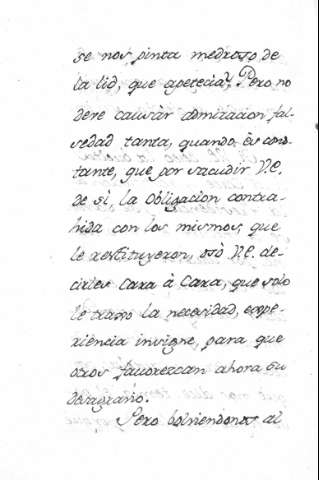 se nos pinta medroso de
la lid, que apetecia? Pero no
deve causàr admiracion fal-
sedad tanta, quando es cons-
tante, que por sacudir V.E.
de sì, la Obligacion contra-
hida con los mismos, que
le restituyeron, osò V.E. de-
cirles Cara à Cara, que solo
le traxo la necesidad, expe-
riencia insigne, para que
otros favorezcan ahora su
desagravio.
Pero bolviendonos al